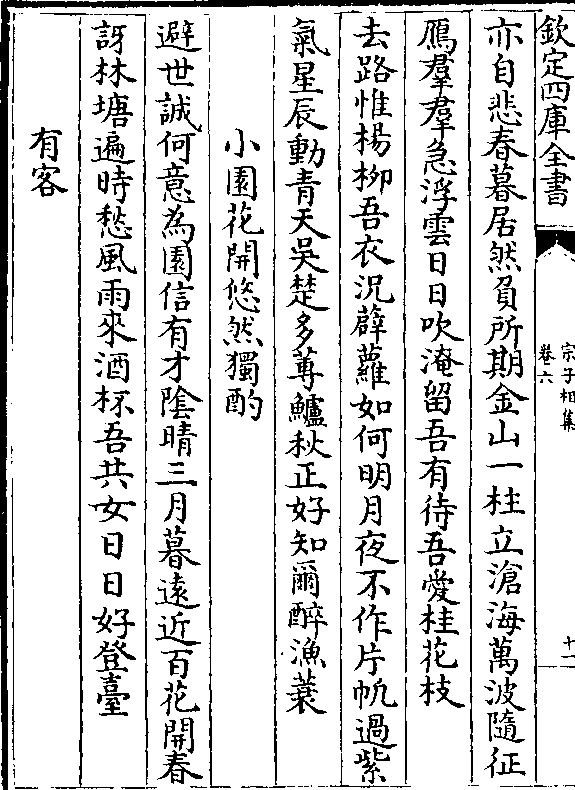 欽定四庫全書
宗子相集
卷六
十一
亦自悲春暮居然負所期金山一柱立滄海萬波隨征
鴈羣羣急浮雲日日吹淹留吾有待吾愛桂花枝
去路惟楊栁吾衣況薜蘿如何明月夜不作片帆過紫
氣星辰動青天吳楚多蓴鱸秋正好知爾醉漁蓑
小園花開悠然獨酌
避世誠何意為園信有才陰晴三月暮遠近百花開春
訝林塘遍時愁風雨來酒杯吾共女日日好登臺
有客